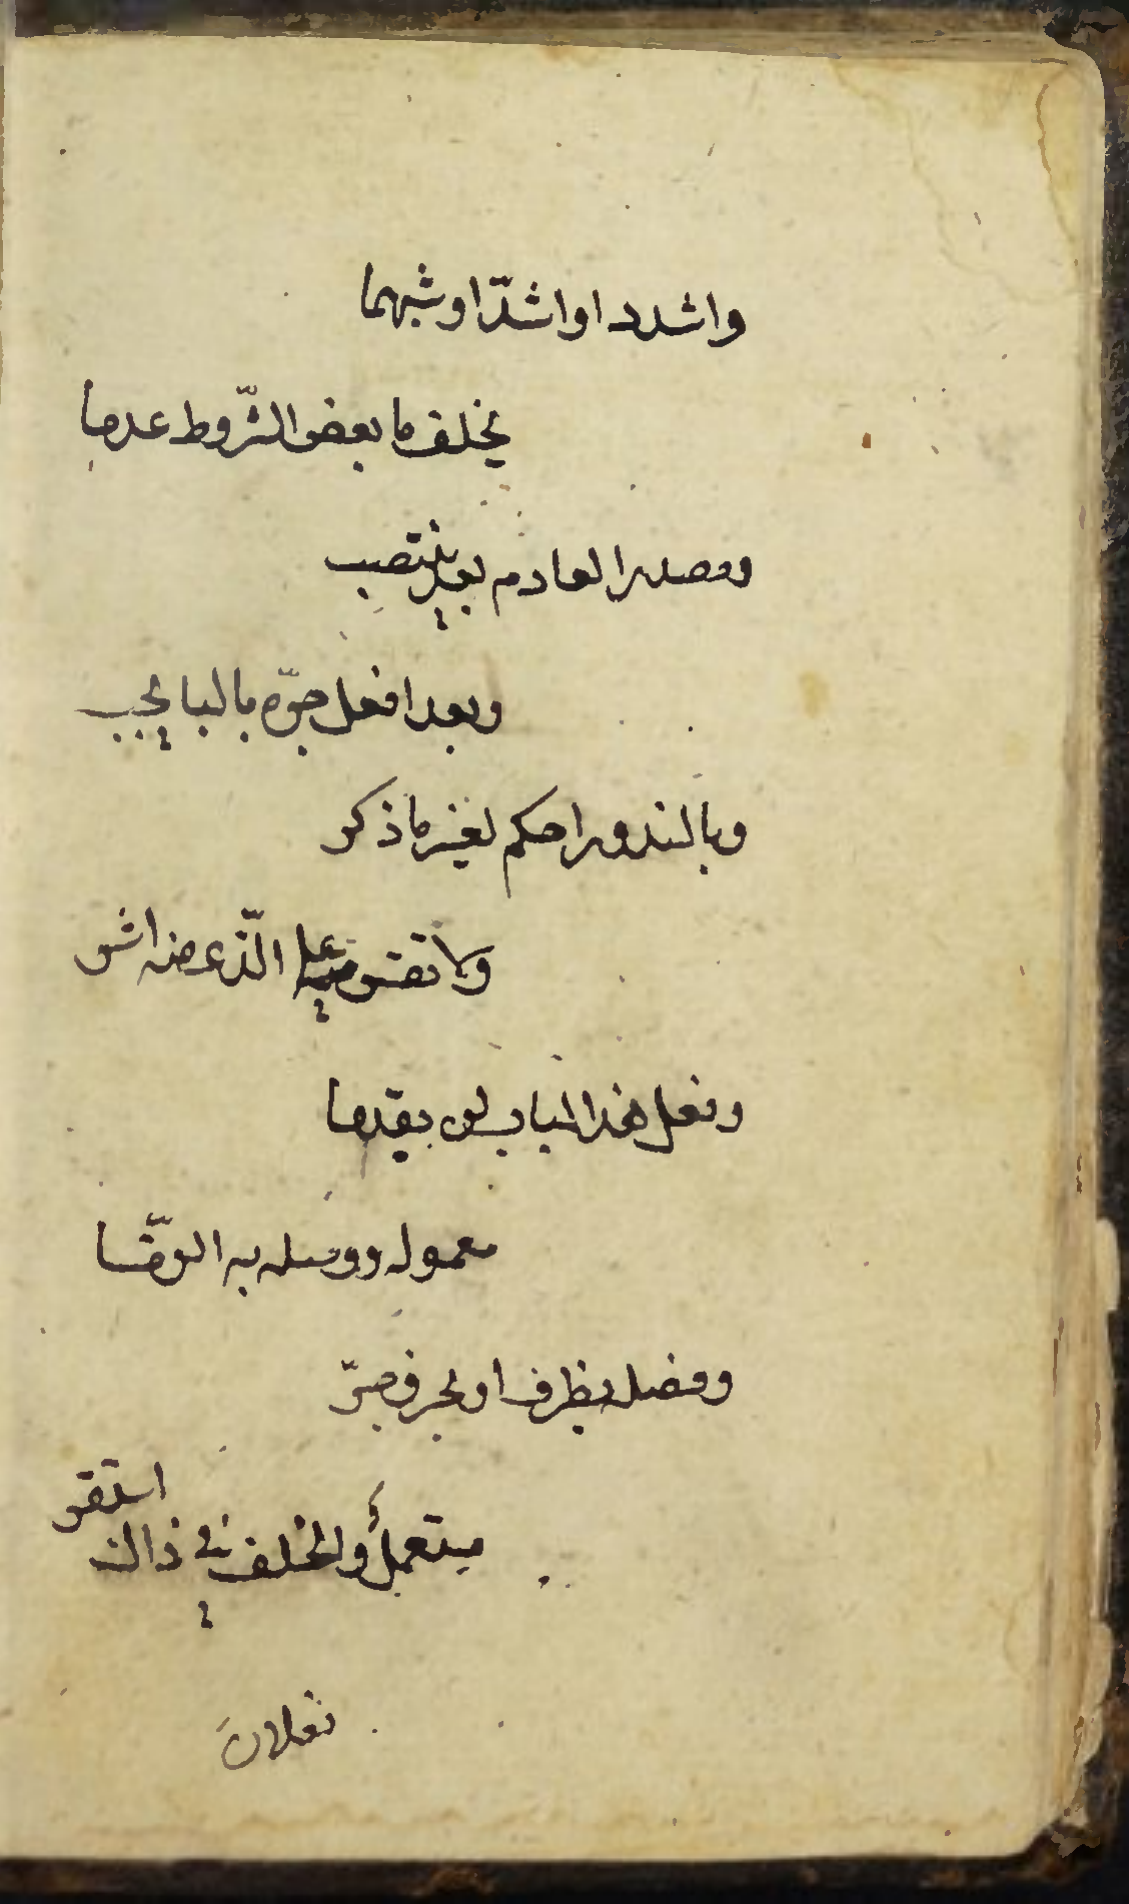 واشدد او اشدّ او شبهما
يخلف ما بعض الشّروط عدما
ومصدر العادم بعد ينتصب
وبعد افعل جرّه بالبا يجب
وبالندور احكم لغير ما ذكر
ولا تقس على الّذي منه اثر
وفعل هذا الباب لن يقدما
معموله ووصله به الزما
وفصله بظرف او بحرف جرّ
مستعمل والخلف في ذاك
استقر
فعلان